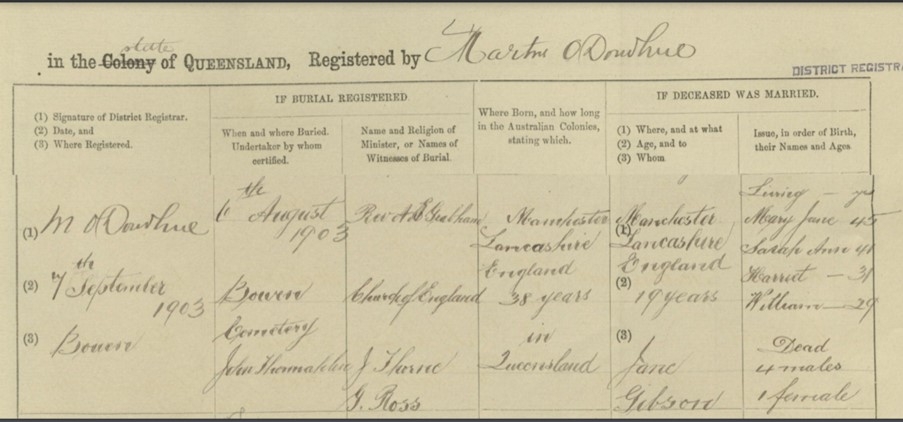 state
in the Colony of QUEENSLAND, Registered by Martin O'Donohue
DISTRICT REGISTRA
(1) Signature of District Registrar.
(2) Date, and
(3) Where Registered.
IF BURIAL REGISTERED.
When and where Buried.
Undertaker by whom
certified.
Name and Religion of
Minister, or Names of
Witnesses of Burial.
Where Born, and how long
in the Australian Colonies,
stating which.
IF DECEASED WAS MARRIED.
(1) Where, and at what
(2) Age, and to
(3) Whom
Issue, in order of Birth,
their Names and Ages.
(1) M O'Donohue
(2) 7th September
1903
(3) Bowen
6th August
1903
Bowen
Cemetery
John
Rev A
Church of England
J Thorne
J. Ross
Manchester
Lancashire
England
38 years
in
Queensland
(1) Manchester
Lancashire
England
(2) 19 years
(3) Jane
Gibson
Living — yrs
Mary Jane 45
Sarah Ann 41
Harriet — 31
William — 29
Dead
4 males
1 female